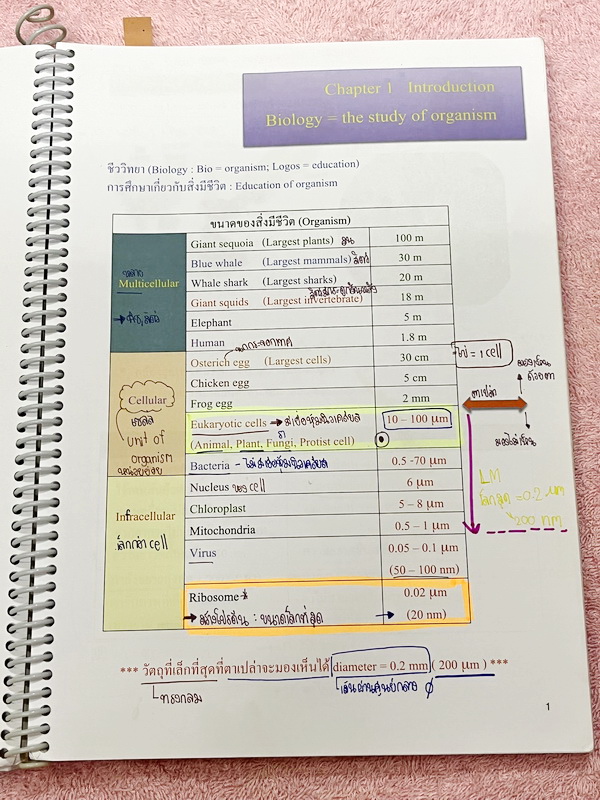 Chapter 1 Introduction
Biology = the study of organism
ชีววิทยา (Biology : Bio = organism; Logos = education)
การศึกษาเกี่ยวกับสิ่งมีชีวิต : Education of organism
ขนาดของสิ่งมีชีวิต (Organism)
Multicellular
Giant sequoia (Largest plants) 100 m
Blue whale (Largest mammals) 30 m
Whale shark (Largest sharks) 20 m
Giant squids (Largest invertebrate) 18 m
Elephant 5 m
Human 1.8 m
Cellular
เซลล์
unit of
organism
หน่วยย่อย
Osterich egg (Largest cells) 30 cm
ไข่ = 1 cell
Chicken egg 5 cm
Frog egg 2 mm
ตาเปล่า
Eukaryotic cells → มีเยื่อหุ้มนิวเคลียส 10 – 100 µm
(Animal, Plant, Fungi, Protist cell)
Bacteria - ไม่มีเยื่อหุ้มนิวเคลียส 0.5 -70 µm
Infracellular
เล็กกว่า cell
Nucleus ของ cell 6 µm
Chloroplast 5 – 8 µm
Mitochondria 0.5 – 1 µm
Virus 0.05 – 0.1 µm
(50 – 100 nm)
Ribosome 0.02 µm
→ สร้างโปรตีน : ขนาดเล็กที่สุด → (20 nm)
LM
เล็กสุด = 0.2 µm
200 nm
*** วัตถุที่เล็กที่สุดที่ตาเปล่าจะมองเห็นได้ diameter = 0.2 mm ( 200 µm ) ***
ทรงกลม
เส้นผ่านศูนย์กลาง Ø
1